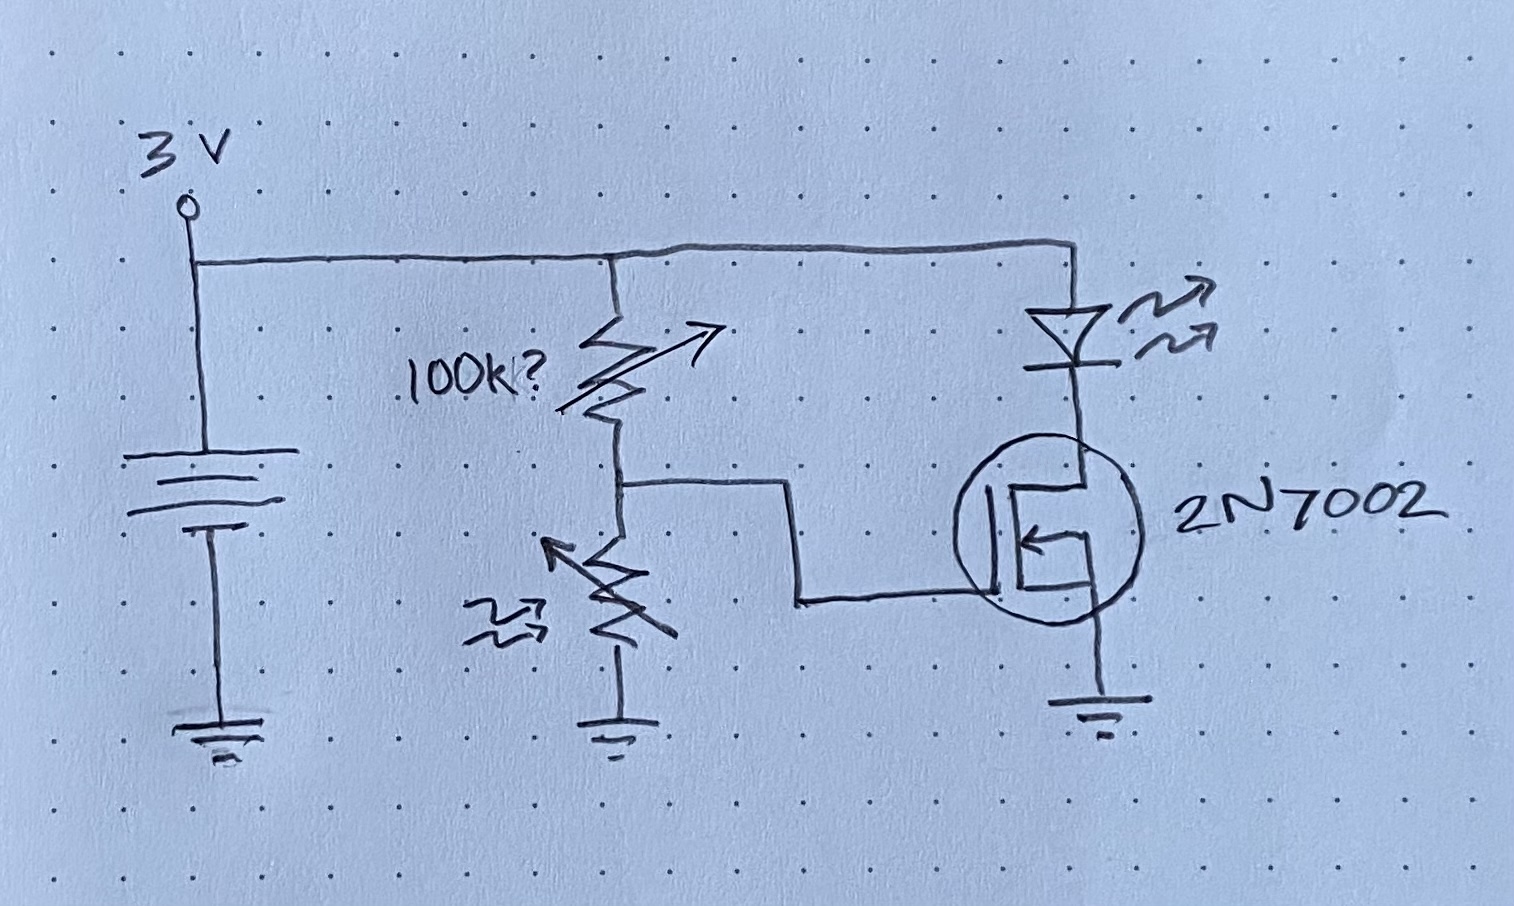 3 V
100k?
2N7002